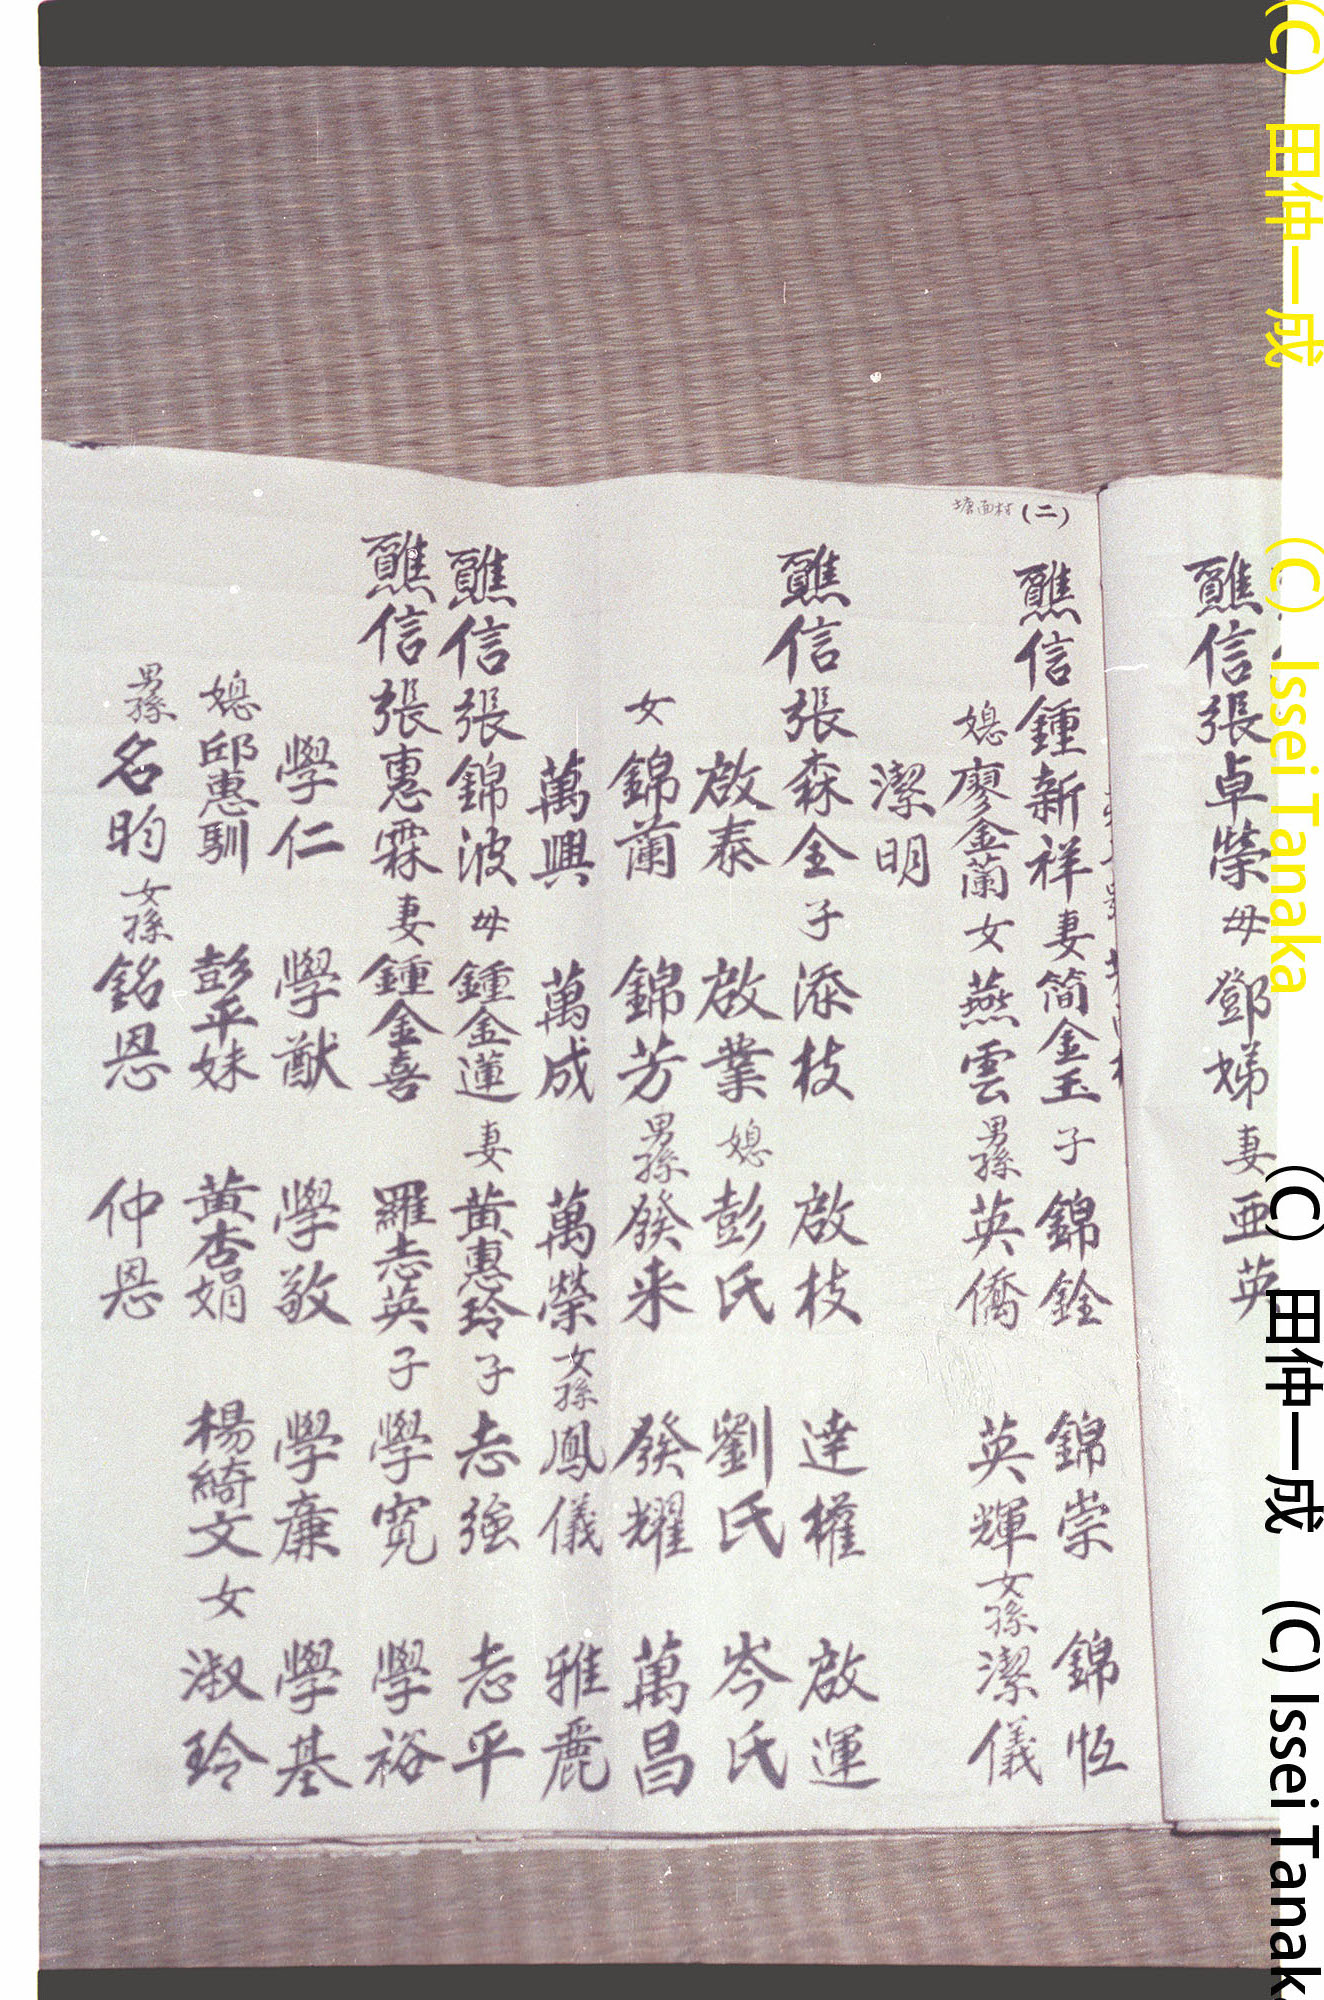 醮信張卓榮母鄧娣妻亞英
塘面村(二)
醮信鍾新祥妻簡金玉子錦銓 錦崇 錦恆
媳廖金蘭女燕雲男孫英僑 英輝女孫潔儀
潔明
醮信張森全子添枝 啟枝 達權 啟運
啟泰 啟業媳彭氏 劉氏 岑氏
女錦蘭 錦芳男孫發来 發耀 萬昌
萬興 萬成 萬榮女孫鳳儀 雅麗
醮信張錦波母鍾金蓮妻黃惠玲子志強 志平
醮信張惠霖妻鍾金喜 羅志英子學寬 學裕
學仁 學猷 學敬 學廉 學基
媳邱惠馴 彭平妹 黃杏娟 楊綺文女淑玲
男孫名昀女孫銘恩 仲恩
(C) 田仲一成 (C) Issei Tanaka
(C) 田仲一成 (C) Issei Tanak